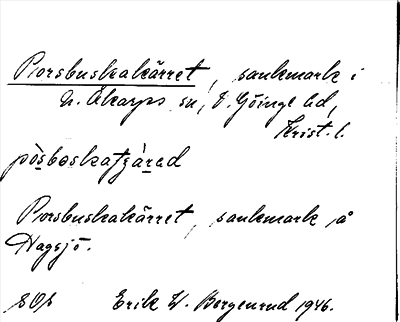 Porsbuskakärret, sankmark i
N. Åkarps sn, V. Göinge hd,
Krist. l.
Porsbuskakärret, sankmark å
Hagsjö.
Erik W. Bergenrud 1946.